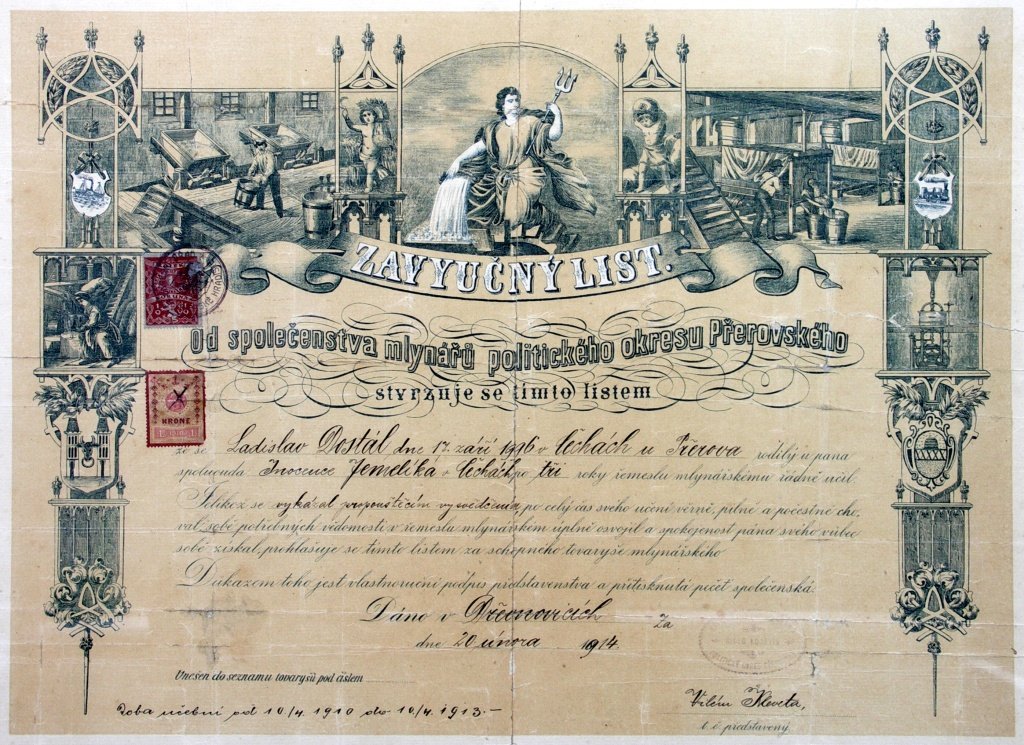 ZAVYUČNÝ LIST.
Od společenstva mlynářů politického okresu Přerovského
stvrzuje se tímto listem
KRONE
že se Ladislav Dostál dne 17. září 1996 v Čechách u Přerova rodilý u pána
spoluouda Inocence Jemelíka v Čechách po tři roky řemeslu mlynářskému řádně učil.
Jelikož se vykázal propouštěcím vysvědčením, po celý čas svého učení věrně, pilně a počestně cho-
val, sobě potřebných vědomostí v řemeslu mlynářském úplně osvojil a spokojenost pána svého vůbec
sobě získal, prohlašuje se tímto listem za schopného tovaryše mlynářského
Důkazem toho jest vlastnoruční podpis představenstva a přitisknutá pečeť společenská.
Dáno v Dřevnovicích Za
dne 20 února 1914.
Unešen do seznamu tovaryšů pod číslem
Doba učební od 10./4. 1910 do 10./4. 1913.-
Vilém
t. č. představený.